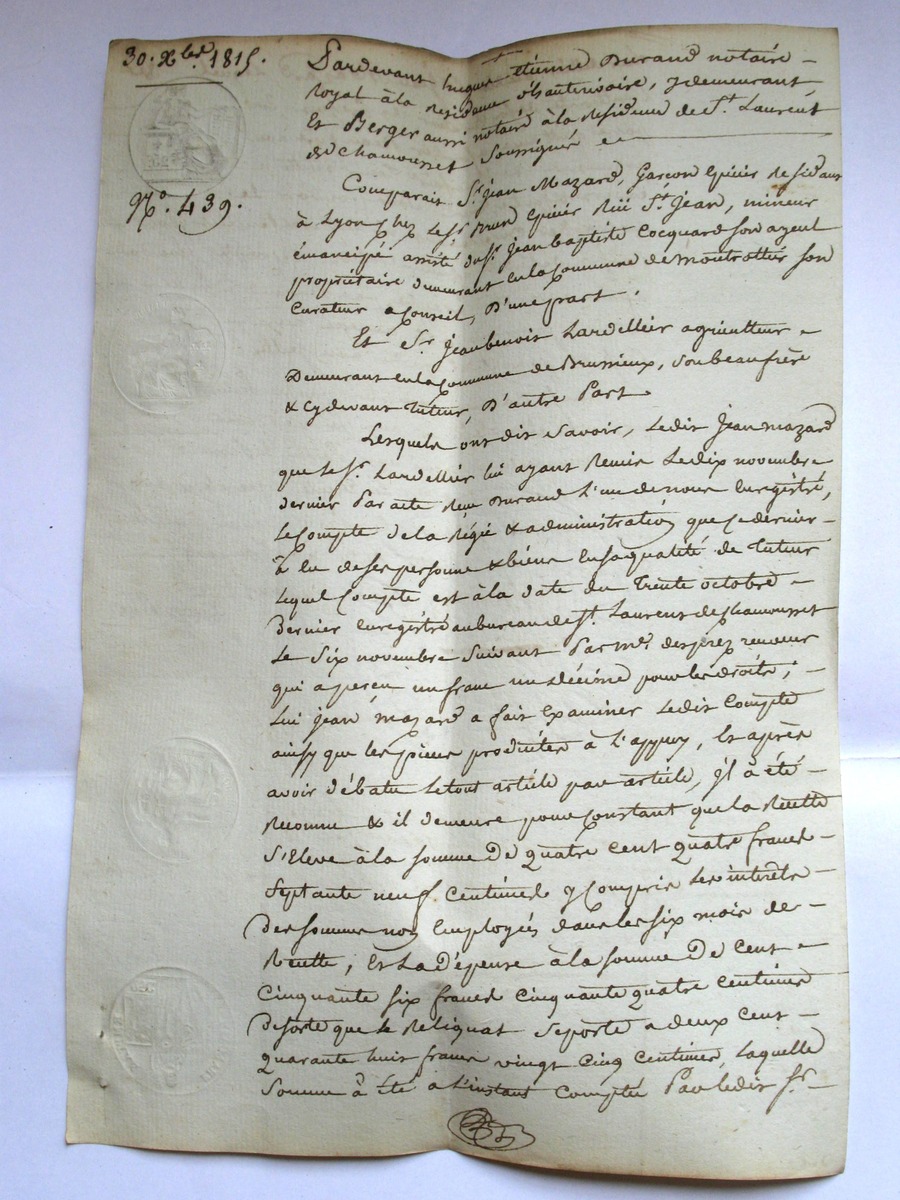 30. Xbre. 1815.
No. 439.
Pardevant hugues étienne Durand notaire
Royal à la Residance d'hauterivoire, y demeurant,
Et Berger aussi notaire à la Residence de St. Laurent
de Chamousset Soussignés
Comparait Sr. Jean Mazard, Garçon Epicier Residant
à Lyon chez le Sr. Brun Epicier Rüe St. Jean, mineur
émancipé assisté du Sr. Jean baptiste Cocquard son ayeul
propriétaire demeurant en la Commune de Montrottier son
Curateur a Conseil, D'une part.
Et Sr. Jean benoit Lardellier agriculteur
Demeurant en la Commune de Brussieux, Son beaufrère
& cydevant tuteur, D'autre Part
Lesquels ont dit Savoir, Ledit Jean mazard
que le Sr. Lardellier lui ayant Remis Le dix novembre
dernier Par acte Reçu Durand L'un de nous Enregistré,
Le Compte de la Régie & administration que ce dernier
à Eu de ses personne & biens En sa qualité de Tuteur
Lequel Compte est à la date du Trente octobre
Dernier Enregistré au bureau de St. Laurent de Chamousset
Le Six novembre Suivant Par Mr. desprez receveur
qui a perçu un franc un décime pour les droits;
Lui Jean mazard a fait Examiner Ledit Compte
ainsy que les pièces produites à L'appuy, Et après
avoir débatu Le tout article par article, il à été
Reconnu & il demeure pour Constant que la Recette
S'Eleve à la somme De quatre cent quatre francs
Septante neuf Centimes y Compris Les interets
Des sommes non Employés dans les six mois de
Recette, Et La dépense à la somme De Cent
Cinquante Six francs Cinquante quatre Centimes
De sorte que le Reliquat Se porte a deux cent
quarante huit francs vingt cinq Centimes, Laquelle
Somme à Eté a L'instant Comptée Par ledit Sr.